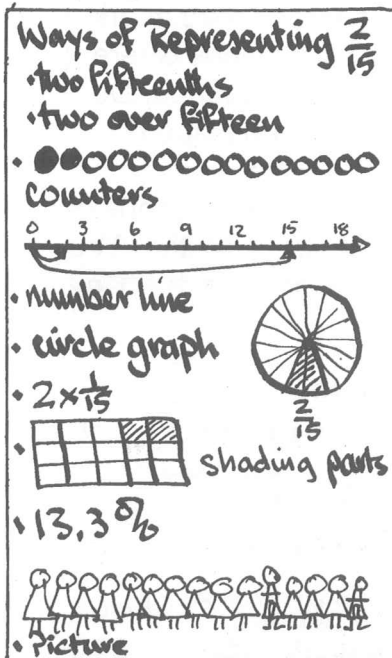 Ways of Representing 2/15
• two fifteenths
• two over fifteen
•
counters
0 3 6 9 12 15 18
• number line
• circle graph
2/15
• 2 × 1/15
• shading parts
• 13,3%
• Picture